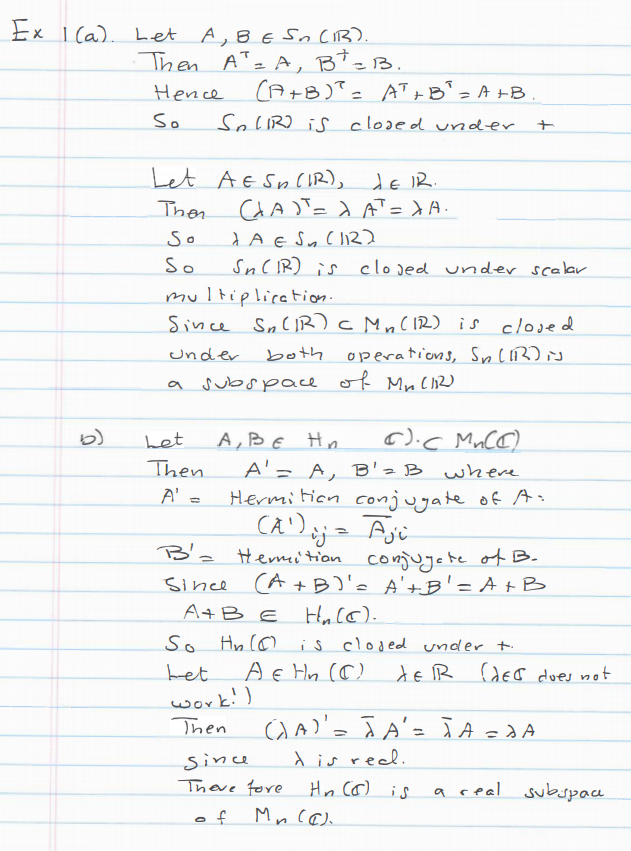 Ex 1(a). Let A, B ∈ Sn(ℝ).
Then Aᵀ = A, Bᵀ = B.
Hence (A+B)ᵀ = Aᵀ + Bᵀ = A + B.
So Sn(ℝ) is closed under +
Let A ∈ Sn(ℝ), λ ∈ ℝ.
Then (λA)ᵀ = λAᵀ = λA.
So λA ∈ Sn(ℝ)
So Sn(ℝ) is closed under scalar
multiplication.
Since Sn(ℝ) ⊂ Mn(ℝ) is closed
under both operations, Sn(ℝ) is
a subspace of Mn(ℝ)
b) Let A, B ∈ Hn ℂ). ⊂ Mn(ℂ)
Then A' = A, B' = B where
A' = Hermitian conjugate of A:
(A')ij = A̅ji
B' = Hermitian conjugate of B.
Since (A + B)' = A' + B' = A + B
A+B ∈ Hn(ℂ).
So Hn(ℂ) is closed under +.
Let A ∈ Hn(ℂ) λ ∈ ℝ (λ∈ℂ does not
work!)
Then (λA)' = λ̅A' = λ̅A = λA
since λ is real.
Therefore Hn(ℂ) is a real subspace
of Mn(ℂ).